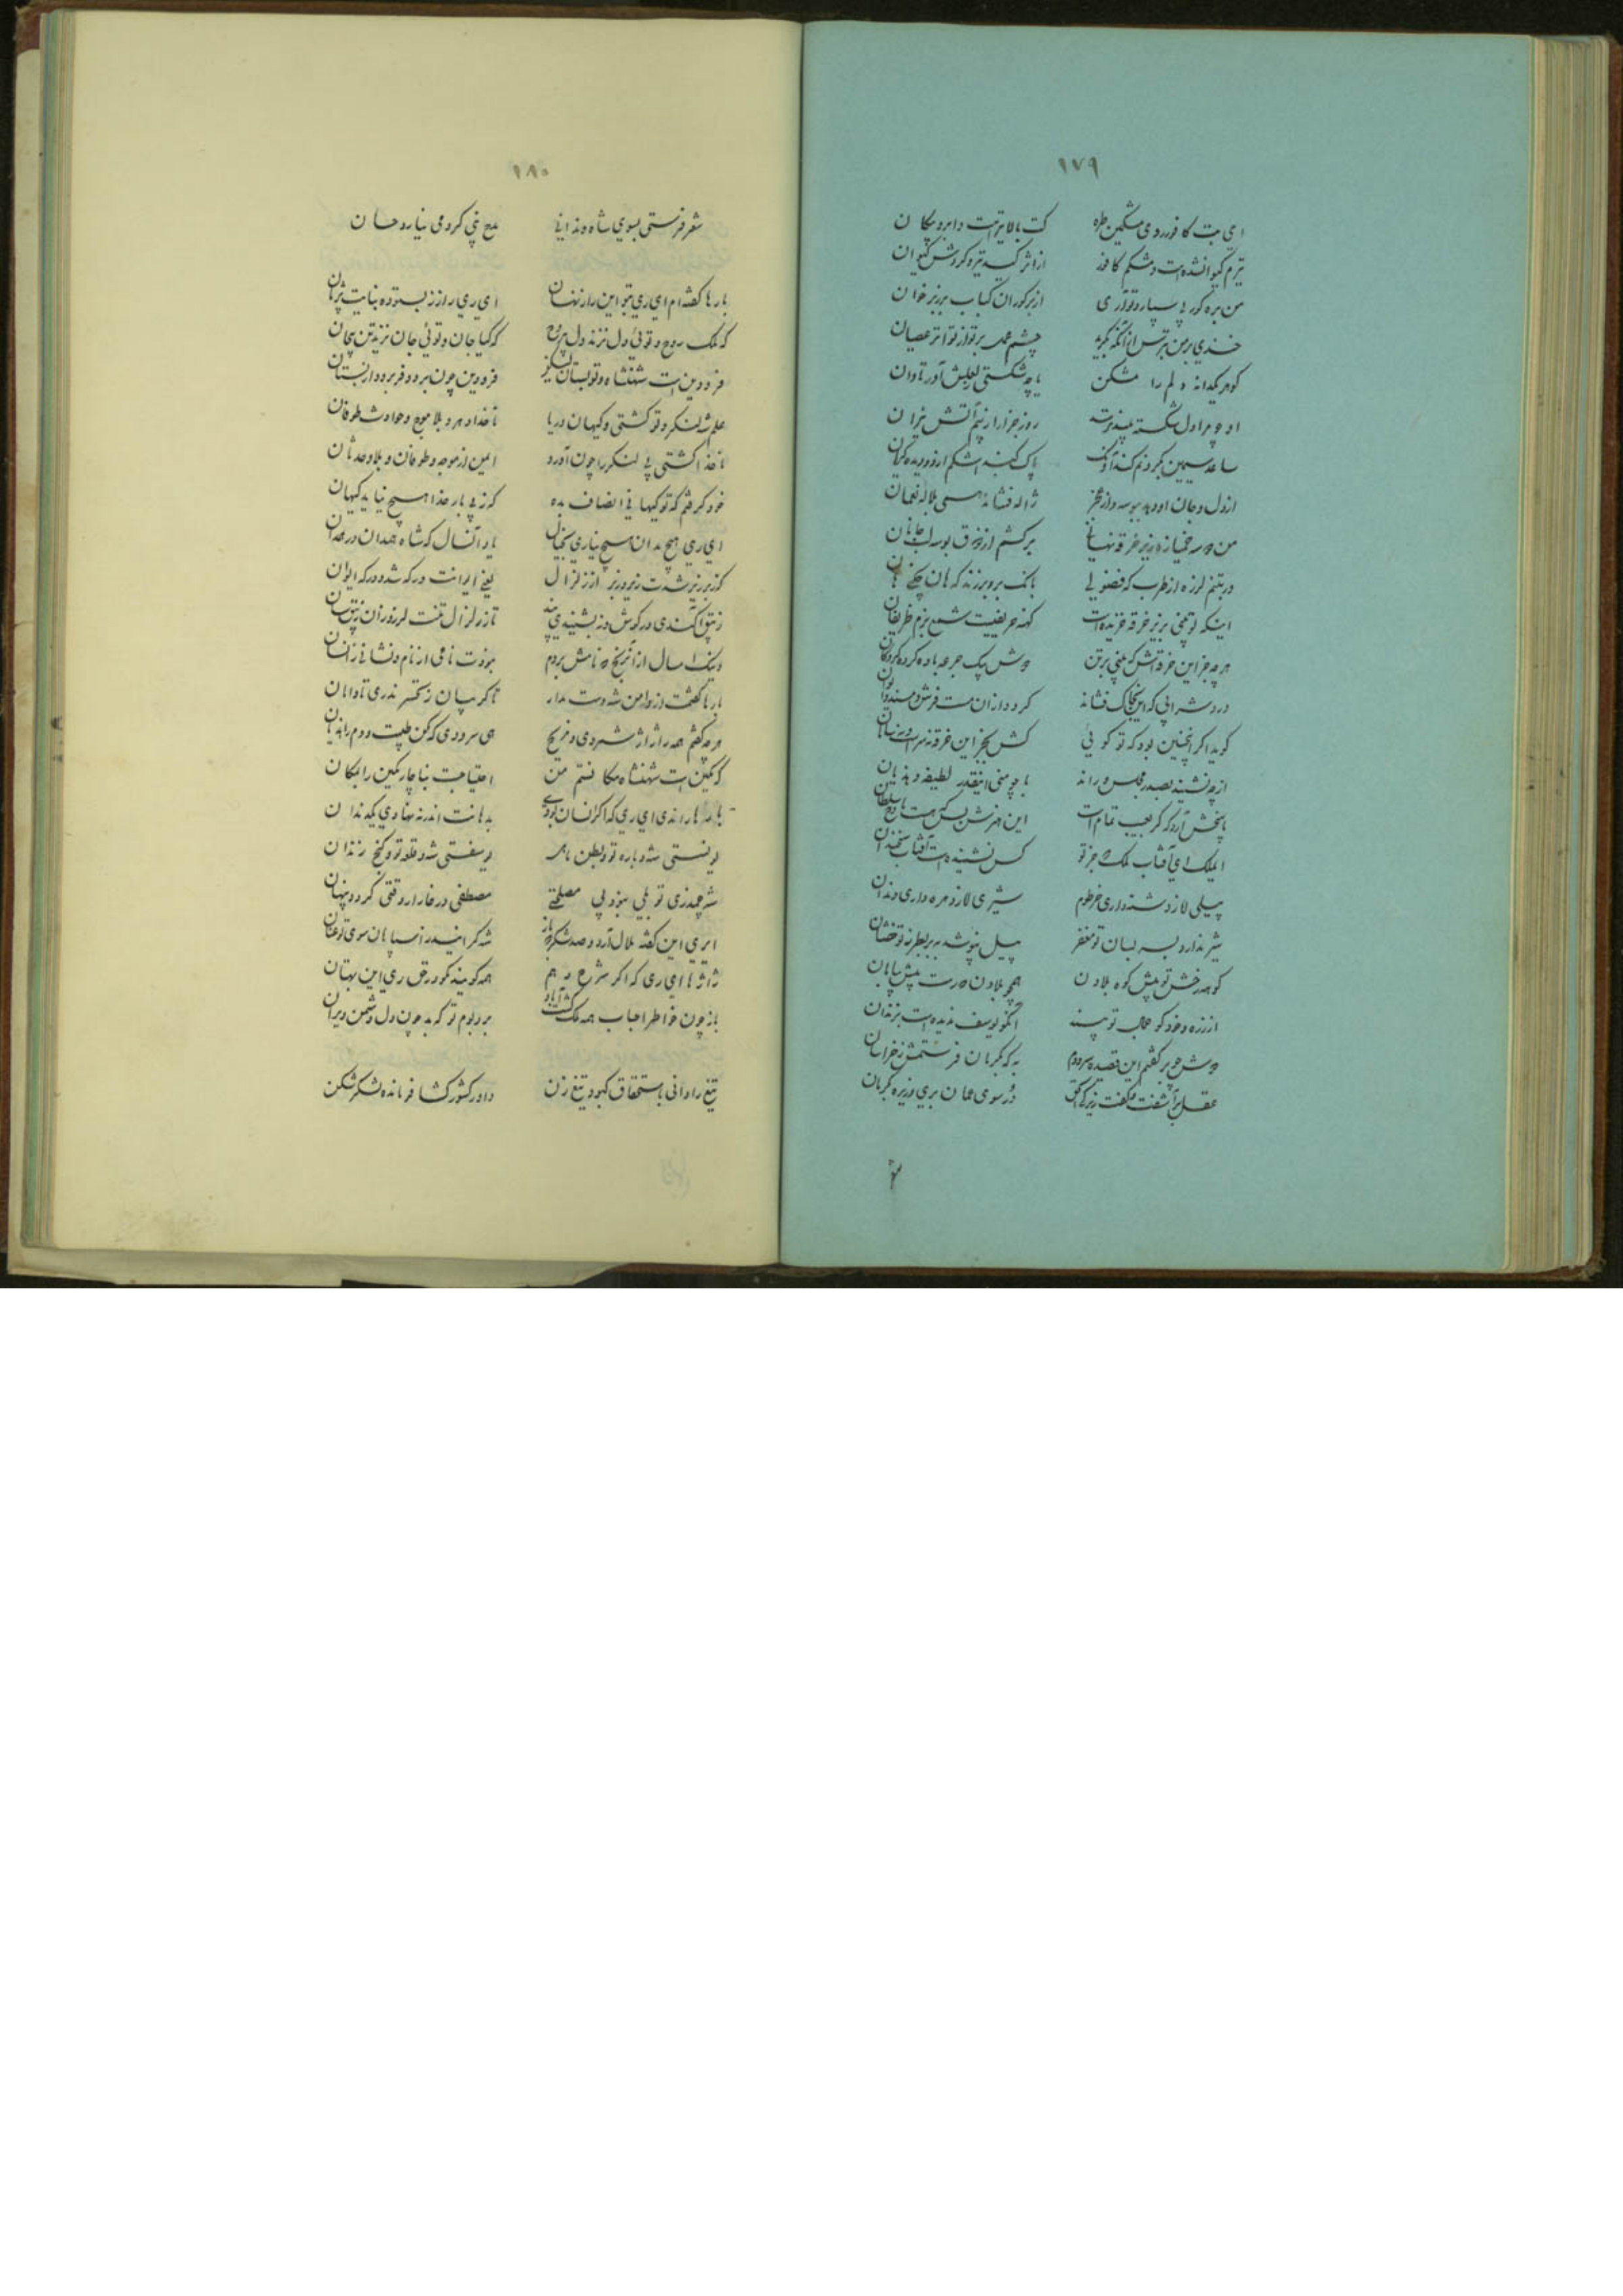 ۱۷۹
ای بت کافور روی مشکین طره کت بالا تیر است و ابرو مکان
تیرم کیوان شده است و مشکم کافور از اثر کسید تیره کردش کیوان
من بره کور بی سپارد تو آری از بر کوران کباب بر زبر خوان
خندی بر من بترس از آنکه بگرید چشم بر تو از تو اثر عصیان
کوهر یکدانه دلم را مشکن یا چه شکستی بلعلش آور تاوان
روز جزا را ز بیم آتش نیران
ساعد سیمین بگردنم کند آونک پاک کند اشکم از دو دیده گریان
از دل و جان او دهد بوسه و از مخز ژاله فشاند همی بلاله نعمان
من دو سه خمیازه زیر خرقه نهانی برکشم از ذوق بوسه لب جانان
در تنم لرزه از طرب که فضولی بانک برو برزند که هان
اینکه تو بینی بزیر خرقه خزیده است کهنه حریفیست شمع بزم ظریفان
هر چه جز این خرقه اش که بینی بر تن دوش بیک جرعه باده کرده کروکان
درد شرابی که این بخاک فشاند کردد از آن مست فرش و مسند و ایوان
کوید اکر اینچنین بود که تو کوئی کش بجز این خرقه نه سر است و نه سامان
از چه نشیند بصدر مجلس و راند با چو منی اینقدر لطیفه و هذیان
پاسخش آرد که کر بعیب تمام است این هنرش بس که هست مادح سلطان
ایملک ای آفتاب ملک که جز تو کس نشنیده است آفتاب سخندان
پیلی لا زد شنه داری خرطوم شیری لا زدهره داری دندان
شیر ندارد بسر بسان تو مغفر پیل نپوشد ببر بطرز تو خفتان
کوهه رخش تو پیش کوه بلادن همچو بلادن درست پیش بیابان
از زره و خود کو جمال تو بیند آنکو یوسف ندیده است بزندان
دوش چو بر کفتم این قصیده سرودم به که بکرمان فرستمش ز خراسان
عقل بر آشفت و گفت زیرکی الحق در سوی عمان بری و زیره بکرمان
۱۸۰
شعر فرستی بسوی شاه و ندانی مدح نبی کرد می نیارد حسان
بارها گفته ام ای ری بتو این راز نهان ای ری راز ز بستوده نبایست پژمان
که ملک روح و توئی دل نزند دل بی روح که کیا جان و توئی جان نزید تن بی جان
فرودین است شهنشاه و تو بستان فرودین چون برود فر برود از بستان
علم شه لنکر و تو کشتی و کیهان دریا ناخدا دهر و بلا موج و حوادث طوفان
ناخدا کشتی بی لنکر را چون آورد ایمن از موجه و طوفان و بلا و حدثان
خود کرفتم که تو کیهانی انصاف بده که ز بی بار خدا هیچ نیاید کیهان
ای ری هیچ مدان هیچ نیاری بخیال یاد آنسال که شاه همدان در همدان
کز بر زیر شدت زیر و زبر از زلزال یعنی ایوانت درکه شد و درکه ایوان
زیبق آکندی در کوش و نه بشنیدی پند تا ز زلزال تنت لرزه زد آن زیبق سان
وینک امسال از آن رنج که نامش بردم بخودت نامی از نام و نشانی ز نشان
بارها گفتمت از دامن شه دست مدار تا کریبان ز تحسر ندری تا دامان
هر چه کفتم همه را ژاژ شمردی و مزیح هی سرودی که کهن طیبت و دم را بنشان
که مکین است شهنشاه مکانستم من احتیاجست بناچار مکین را بمکان
بارها راندی ای ری که اکرانسان بودی بدهانت اندر ننهادی یکدندان
یونسی شه و باره تو و بطن ماهی یوسفستی شه و قلعه تو و کنج زندان
شه چه زی تو بلی بنود بی مصلحتی مصطفی در غار ار وقتی کردد پنهان
ایری این کفته ملال آرد و صد شکر که باز شه کرانید ز اسپاهان سوی تو عنان
ژاژها ای ری که اکر شرح دهم همه کویند نکو در حق ری این بهتان
باز چون خاطر احباب همه ملک آباد بر و بوم تو که بد چون دل دشمن ویران
تیغ را دانی باستحقاق کبود تیغ زن داور کشور کشا فرمانده لشکر شکن